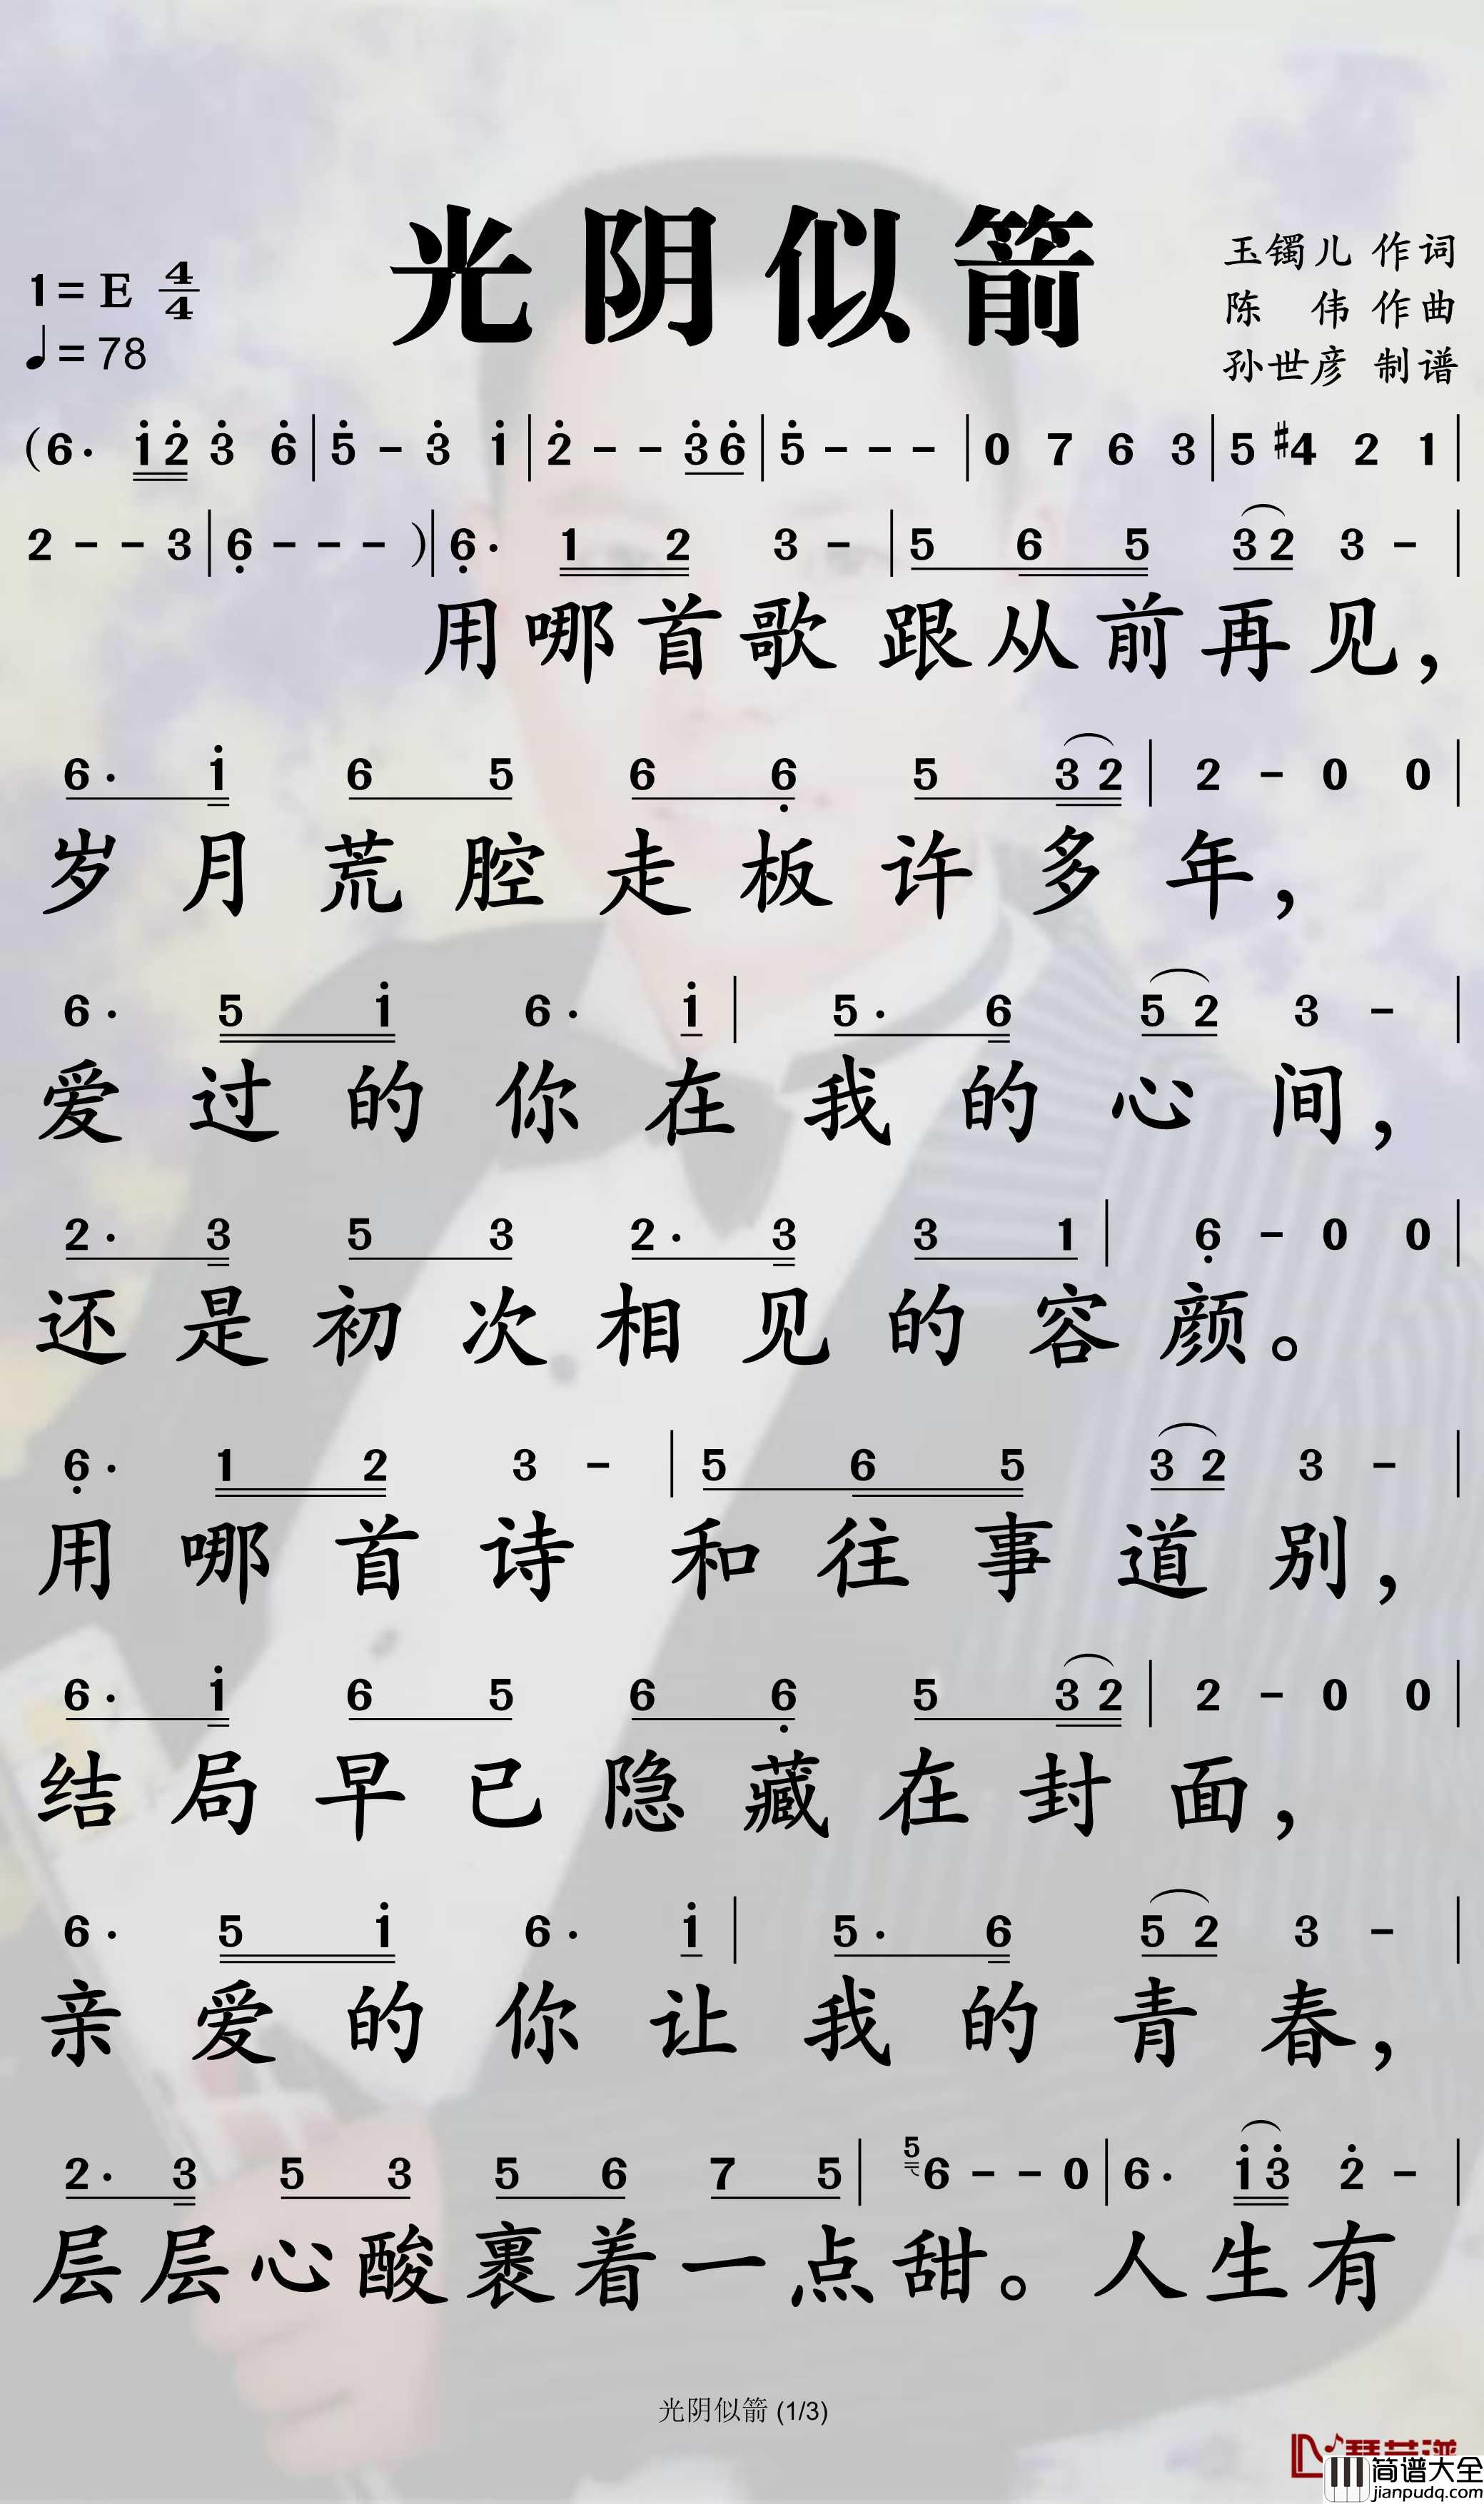 光阴似箭
1=E 4/4
♩=78
玉镯儿 作词
陈 伟 作曲
孙世彦 制谱
(6· i̇ 2̇ 3̇ 6̇ | 5̇ - 3̇ i̇ | 2̇ - - 3̇ 6̇ | 5̇ - - - | 0 7 6 3 | 5 #4 2 1 |
2 - - 3 | 6̣ - - - ) | 6̣· 1 2 3 - | 5 6 5 3 2 3 - |
用哪首歌 跟从前再见，
6· i̇ 6 5 6 6̣ 5 3 2 | 2 - 0 0 |
岁月荒腔走板许多年，
6· 5 i̇ 6· i̇ | 5· 6 5 2 3 - |
爱过的你在我的心间，
2· 3 5 3 2· 3 3 1 | 6̣ - 0 0 |
还是初次相见的容颜。
6̣· 1 2 3 - | 5 6 5 3 2 3 - |
用哪首诗 和往事道别，
6· i̇ 6 5 6 6̣ 5 3 2 | 2 - 0 0 |
结局早已隐藏在封面，
6· 5 i̇ 6· i̇ | 5· 6 5 2 3 - |
亲爱的你让我的青春，
2· 3 5 3 5 6 7 5 | 5 6 - - 0 | 6· i̇ 3̇ 2̇ - |
层层心酸裹着一点甜。人生有
光阴似箭 (1/3)
简谱大全
jianpudq.com